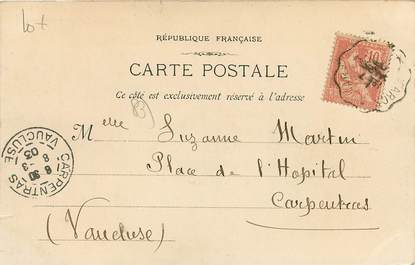 lot
RÉPUBLIQUE FRANÇAISE
CARTE POSTALE
Ce côté est exclusivement réservé à l'adresse
Melle Suzanne Martin
Place de l'Hopital
Carpentras
(Vaucluse)
CARPENTRAS
VAUCLUSE
8 30
8 -3
03
10